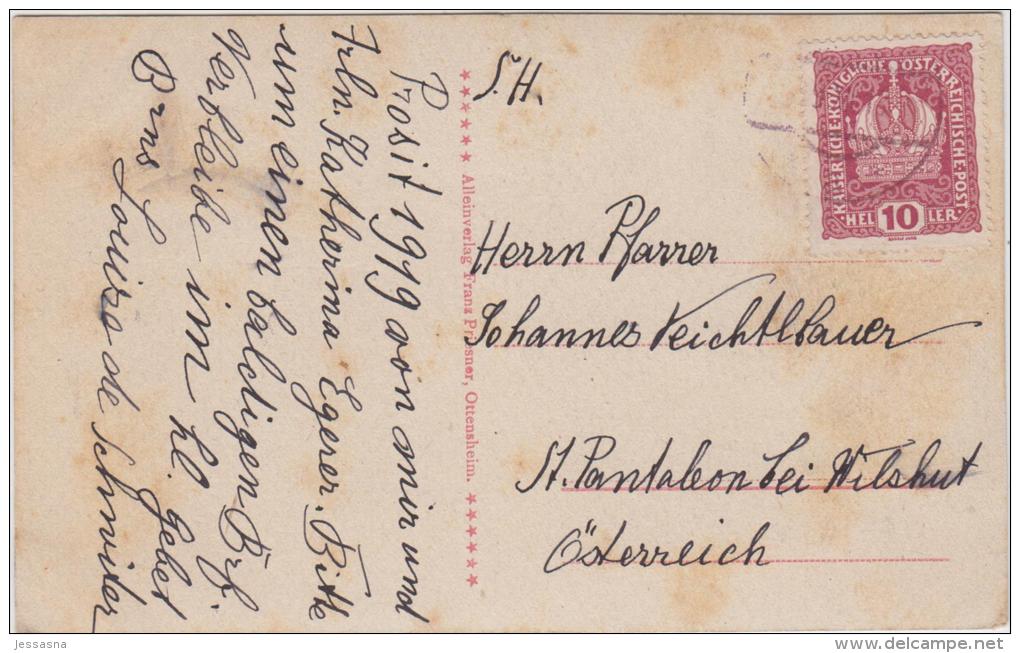 Prosit 1919 von mir und
Frln. Katherina Egerer. Bitte
um einen baldigen Brf.
Verbleibe im hl. Gebet
Louise de Schmider
★★★★★★ Alleinverlag Franz Priesner, Ottensheim. ★★★★★★
S.H.
KAISERLICHE KÖNIGLICHE ÖSTERREICHISCHE POST
HEL 10 LER
Herrn Pfarrer
Johannes Veichtlbauer
St. Pantaleon bei Wilshut
Österreich
jessasna
www.delcampe.net